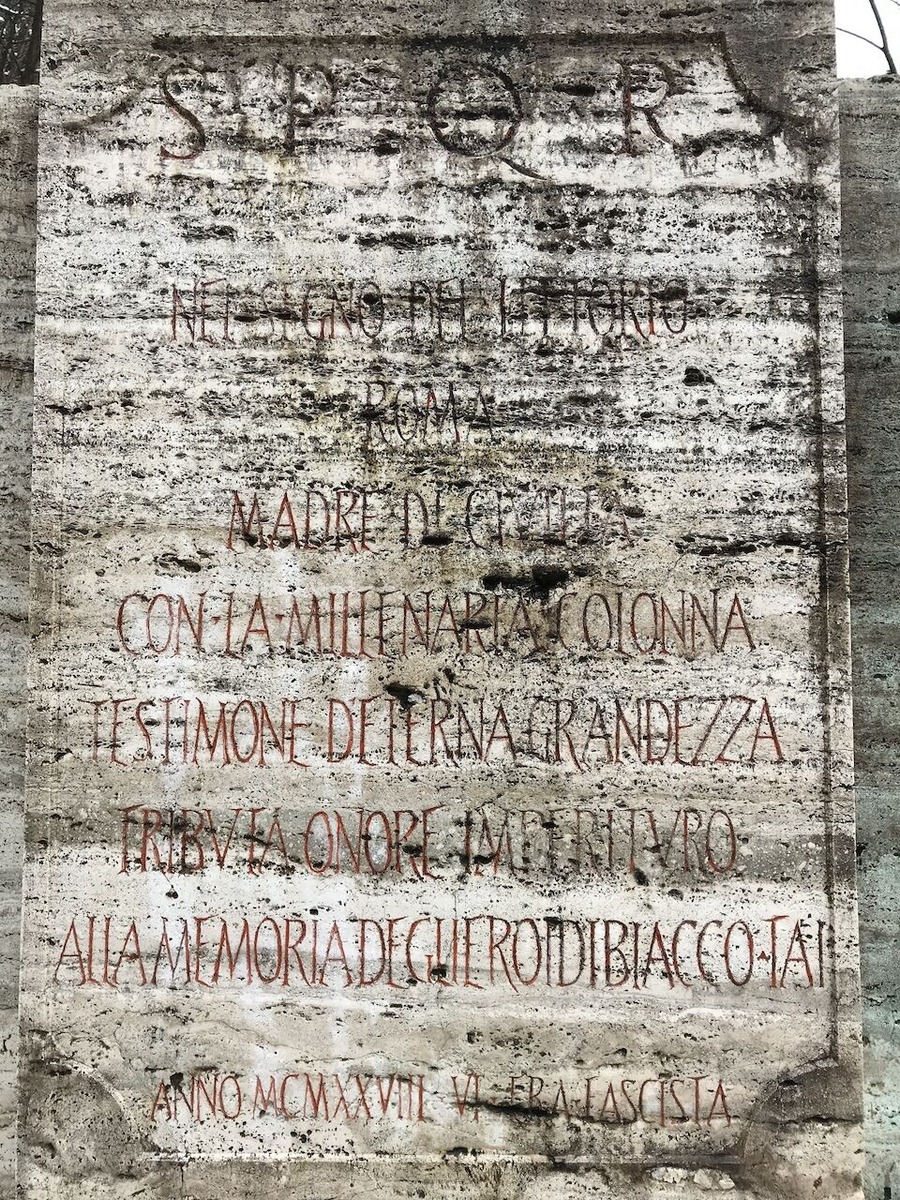 S P Q R
NEL SEGNO DEL LITTORIO
ROMA
MADRE DI CIVILTÀ
CON·LA·MILLENARIA·COLONNA
TESTIMONE D'ETERNA GRANDEZZA
TRIBVTA ONORE IMPERITVRO
ALLA MEMORIA DEGLI EROI DI BIACCO·TAI
ANNO MCMXXVIII VI ERA FASCISTA